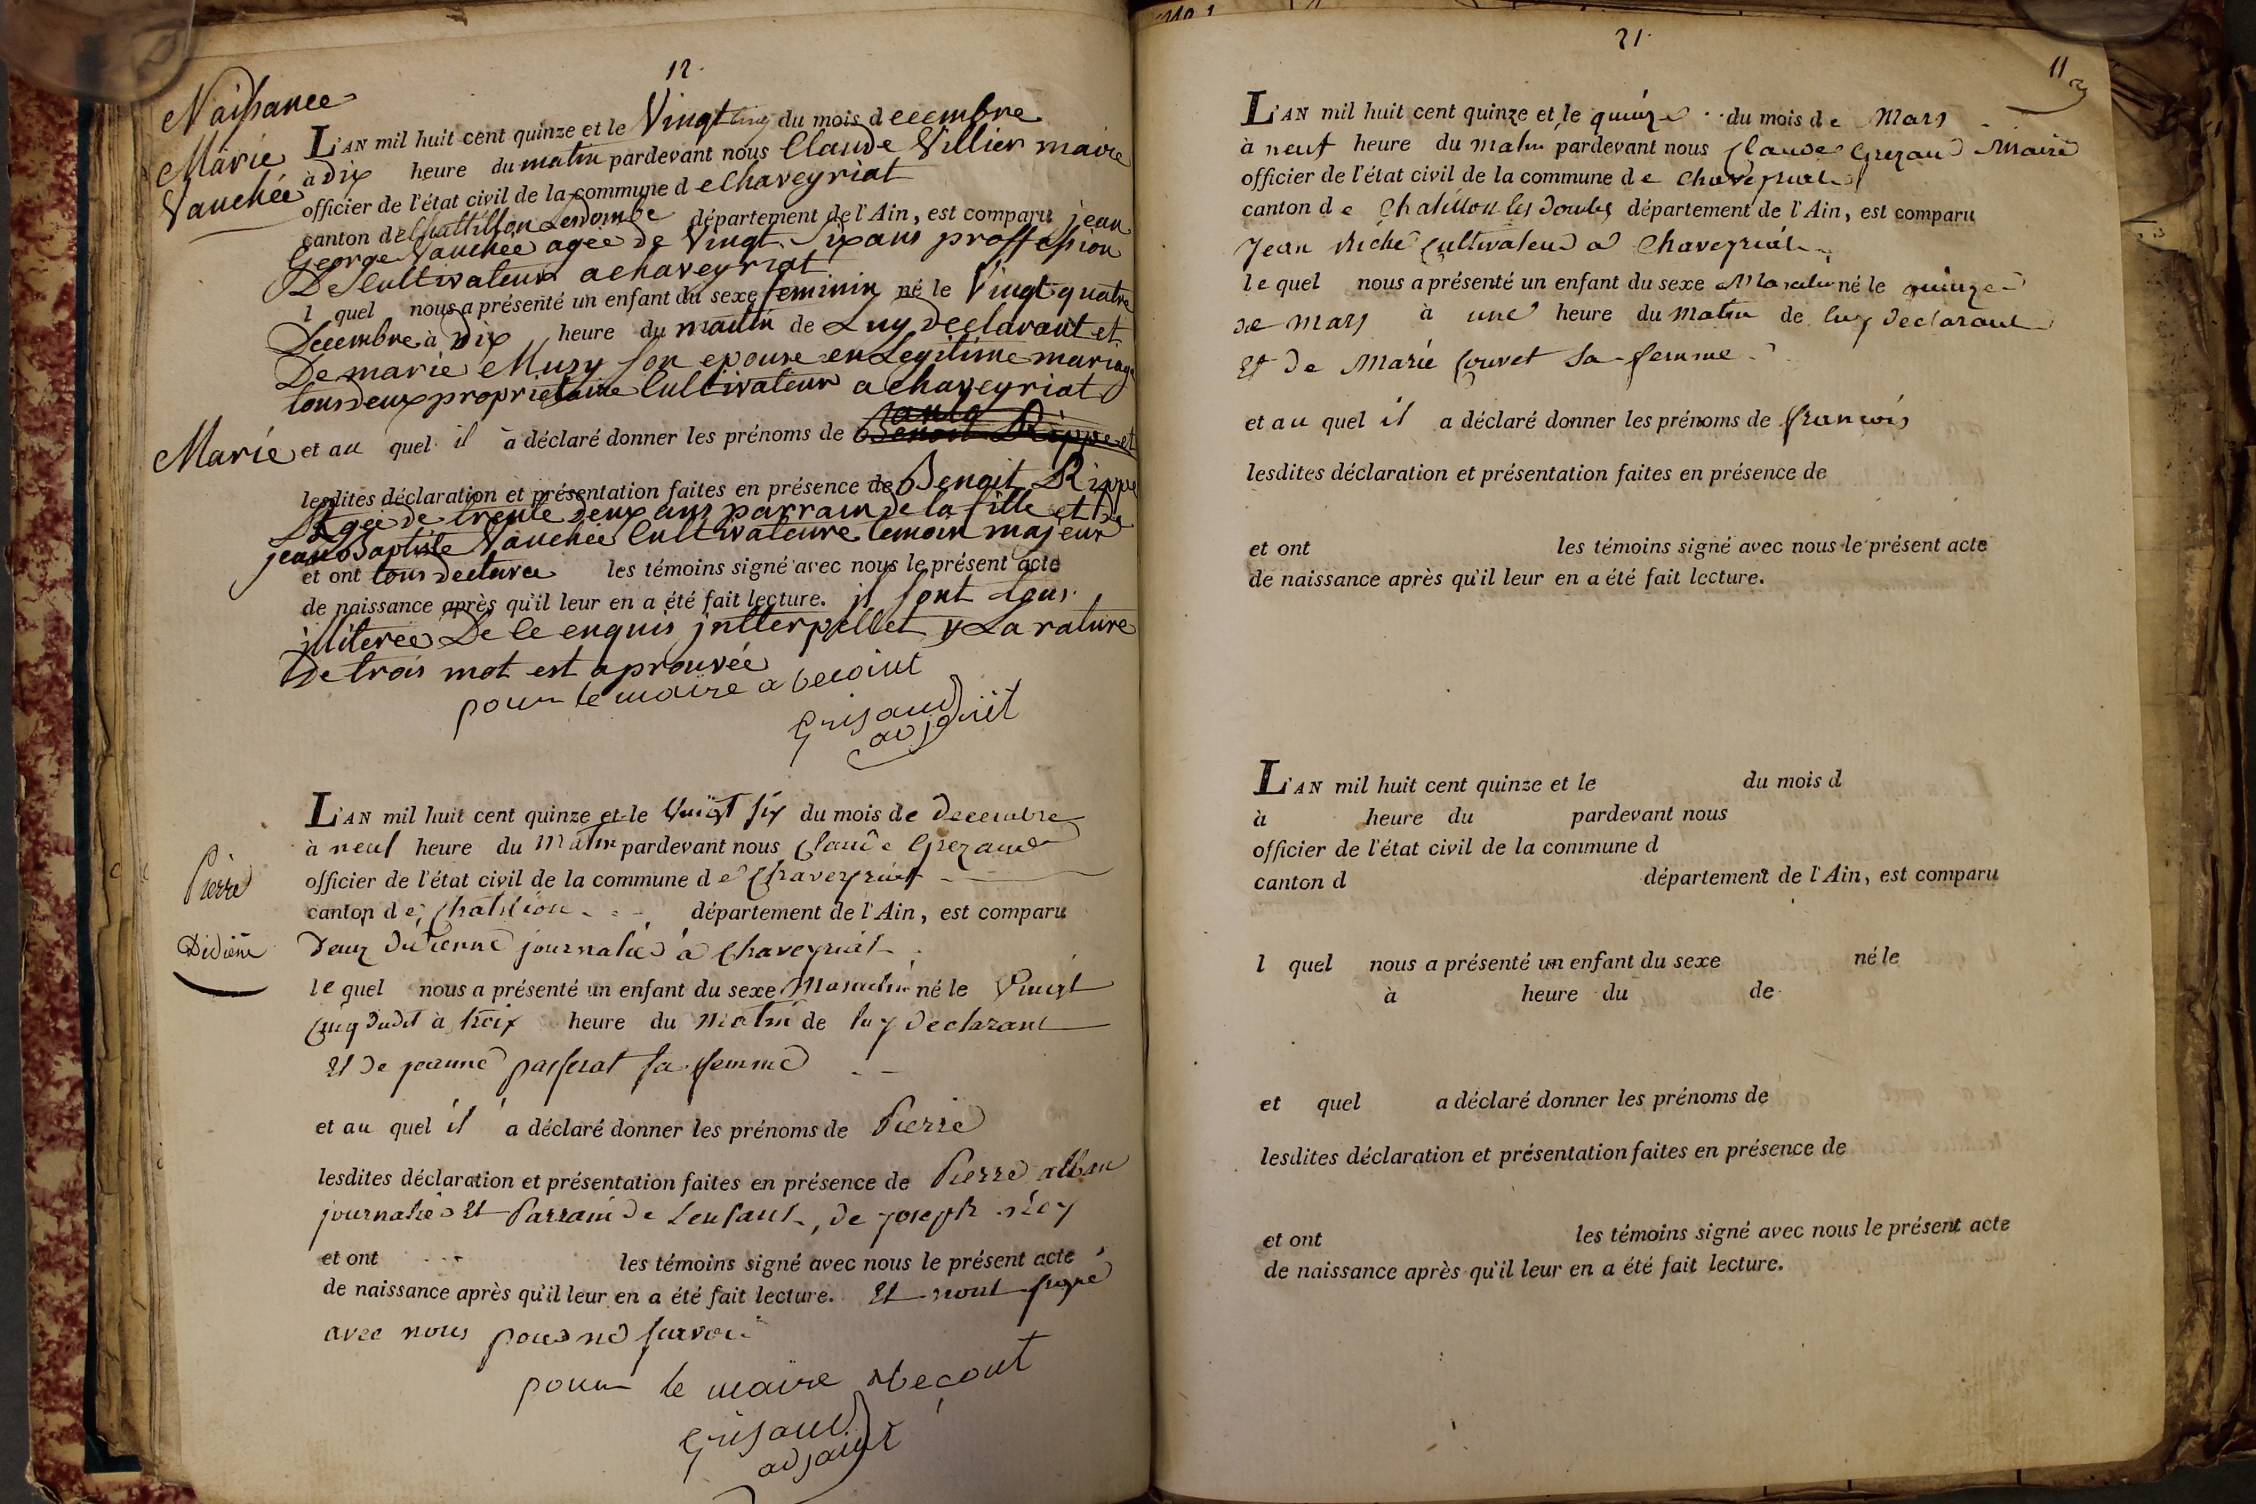 12.
Naissance
Marie
Vauchée
L'AN mil huit cent quinze et le Vingt cinq du mois decembre
à Dix heure du matin pardevant nous Claude Villier maire
officier de l'état civil de la commune de Chaveyriat
canton de Chattillon Lesdombe département de l'Ain, est comparu jean
George Vauchée agée de Vingt Six ans proffession
De Cultivateur a chaveyriat
l quel nous a présenté un enfant du sexe feminin né le Vingt quatre
Decembre à Dix heure du matin de Luy declarant et
De marie Musy son epouse en Legitime mariage
tous deux proprietaire Cultivateur a chaveyriat
Marie et au quel il a déclaré donner les prénoms de Benoit Rippe et
lesdites déclaration et présentation faites en présence de Benoit Rippe
Agée de trente Deux ans parrain de la fille et De
jean Baptiste Vauchée Cultivateure temoin majeur
et ont tous declarée les témoins signé avec nous le présent acte
de naissance après qu'il leur en a été fait lecture. il sont tous
illiterée De ce enquis jntterpellet y La rature
De trois mot est aprouvée
pour le maire absent
Grisaud
adjoint
Pierre
Didiene
L'AN mil huit cent quinze et le Vingt six du mois de decembre
à neuf heure du Matin pardevant nous Claude Grezaud
officier de l'état civil de la commune de Chaveyriat
canton de Chatillon département de l'Ain, est comparu
journalier à Chaveyriat
le quel nous a présenté un enfant du sexe Masculin né le Vingt
Cinq dudit à troix heure du Matin de luy declarant
Et de jeanne passerat sa femme
et au quel il a déclaré donner les prénoms de Pierre
lesdites déclaration et présentation faites en présence de Pierre alban
journalier Et Parrain de Lenfant, de joseph Rey
et ont les témoins signé avec nous le présent acte
de naissance après qu'il leur en a été fait lecture. Et nont signé
avec nous pour ne savoir
pour le maire absent
Grisaud
adjoint
21.
11
L'AN mil huit cent quinze et le quinze du mois de Mars
à neuf heure du matin pardevant nous Claude Grezaud Maire
officier de l'état civil de la commune de Chaveyriat
canton de Chatillon les Dombes département de l'Ain, est comparu
Jean Miché Cultivateur a Chaveyriat
le quel nous a présenté un enfant du sexe Masculin né le quinze
de Mars à une heure du Matin de luy declarant
Et de Marie Couvet sa femme
et au quel il a déclaré donner les prénoms de francois
lesdites déclaration et présentation faites en présence de
et ont les témoins signé avec nous le présent acte
de naissance après qu'il leur en a été fait lecture.
L'AN mil huit cent quinze et le du mois d
à heure du pardevant nous
officier de l'état civil de la commune d
canton d département de l'Ain, est comparu
l quel nous a présenté un enfant du sexe né le
à heure du de
et quel a déclaré donner les prénoms de
lesdites déclaration et présentation faites en présence de
et ont les témoins signé avec nous le présent acte
de naissance après qu'il leur en a été fait lecture.